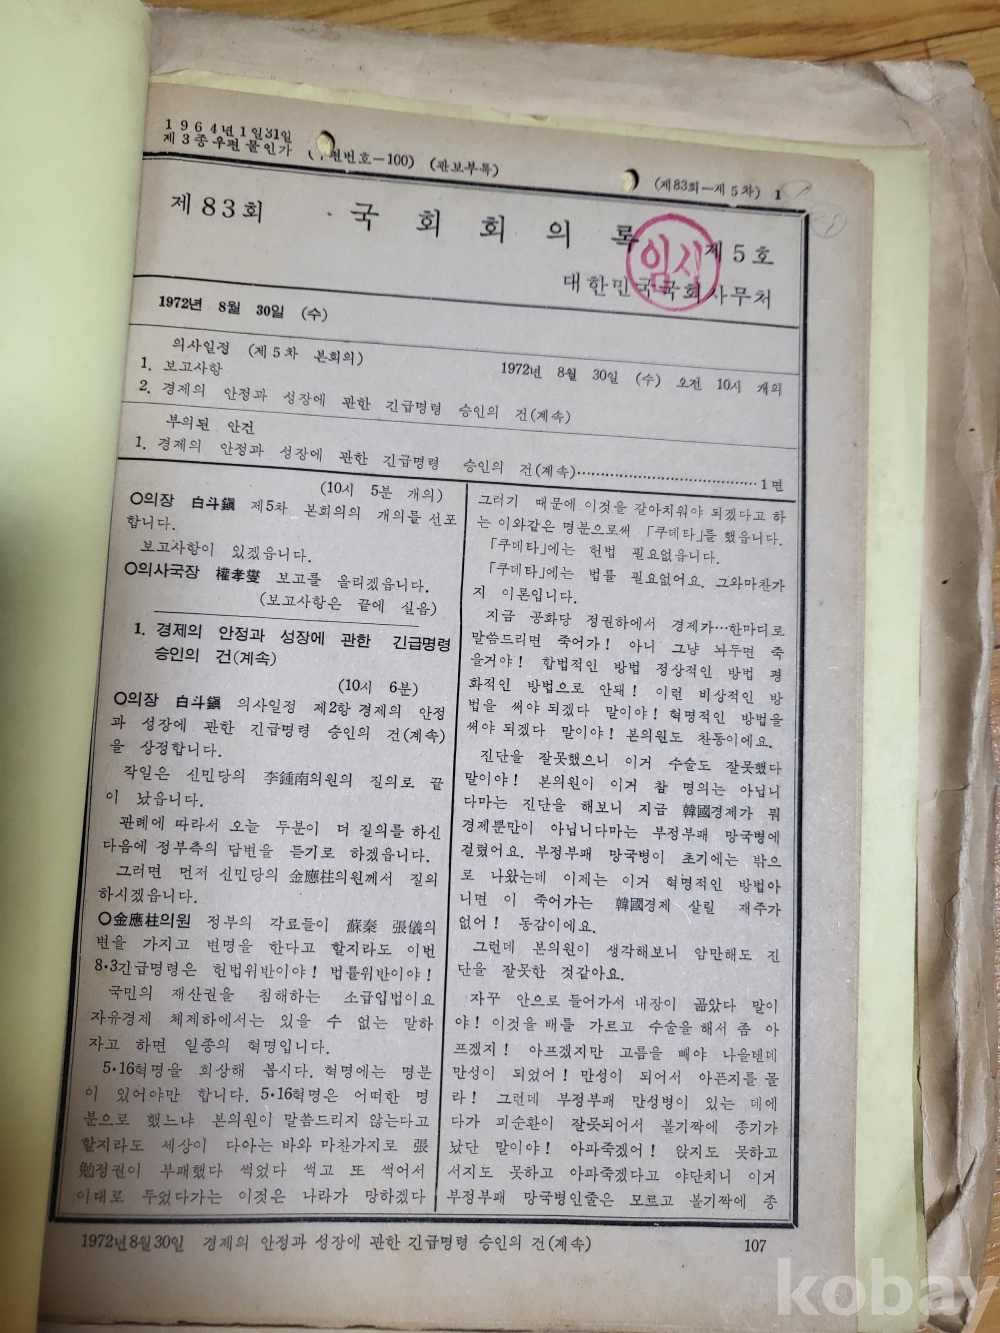 1964년1일31일
제3종우편물인가 (우편번호—100) (관보부록)
(제83회—제5차) 1
제83회 국회회의록 제5호
임시
대한민국국회사무처
1972년 8월 30일 (수)
의사일정 (제5차 본회의) 1972년 8월 30일 (수) 오전 10시 개의
1. 보고사항
2. 경제의 안정과 성장에 관한 긴급명령 승인의 건(계속)
부의된 안건
1. 경제의 안정과 성장에 관한 긴급명령 승인의 건(계속)……………………………1면
(10시 5분 개의)
○의장 白斗鎭 제5차 본회의의 개의를 선포
합니다.
보고사항이 있겠읍니다.
○의사국장 權孝燮 보고를 올리겠읍니다.
(보고사항은 끝에 실음)
1. 경제의 안정과 성장에 관한 긴급명령
승인의 건(계속)
(10시 6분)
○의장 白斗鎭 의사일정 제2항 경제의 안정
과 성장에 관한 긴급명령 승인의 건(계속)
을 상정합니다.
작일은 신민당의 李鍾南의원의 질의로 끝
이 났읍니다.
관례에 따라서 오늘 두분이 더 질의를 하신
다음에 정부측의 답변을 듣기로 하겠읍니다.
그러면 먼저 신민당의 金應柱의원께서 질의
하시겠읍니다.
○金應柱의원 정부의 각료들이 蘇秦 張儀의
변을 가지고 변명을 한다고 할지라도 이번
8·3긴급명령은 헌법위반이야! 법률위반이야!
국민의 재산권을 침해하는 소급입법이요
자유경제 체제하에서는 있을 수 없는 말하
자고 하면 일종의 혁명입니다.
5·16혁명을 회상해 봅시다. 혁명에는 명분
이 있어야만 합니다. 5·16혁명은 어떠한 명
분으로 했느냐 본의원이 말씀드리지 않는다고
할지라도 세상이 다아는 바와 마찬가지로 張
勉정권이 부패했다 썩었다 썩고 또 썩어서
이대로 두었다가는 이것은 나라가 망하겠다
그러기 때문에 이것을 갈아치워야 되겠다고 하
는 이와같은 명분으로써 「쿠데타」를 했읍니다.
「쿠데타」에는 헌법 필요없읍니다.
「쿠데타」에는 법률 필요없어요. 그와마찬가
지 이론입니다.
지금 공화당 정권하에서 경제가…한마디로
말씀드리면 죽어가! 아니 그냥 놔두면 죽
을거야! 합법적인 방법 정상적인 방법 평
화적인 방법으로 안돼! 이런 비상적인 방
법을 써야 되겠다 말이야! 혁명적인 방법을
써야 되겠다 말이야! 본의원도 찬동이에요.
진단을 잘못했으니 이거 수술도 잘못했다
말이야! 본의원이 이거 참 명의는 아닙니
다마는 진단을 해보니 지금 韓國경제가 뭐
경제뿐만이 아닙니다마는 부정부패 망국병에
걸렸어요. 부정부패 망국병이 초기에는 밖으
로 나왔는데 이제는 이거 혁명적인 방법아
니면 이 죽어가는 韓國경제 살릴 재주가
없어! 동감이에요.
그런데 본의원이 생각해보니 암만해도 진
단을 잘못한 것같아요.
자꾸 안으로 들어가서 내장이 곪았다 말이
야! 이것을 배를 가르고 수술을 해서 좀 아
프겠지! 아프겠지만 고름을 빼야 나을텐데
만성이 되었어! 만성이 되어서 아픈지를 몰
라! 그런데 부정부패 만성병이 있는 데에
다가 피순환이 잘못되어서 볼기짝에 종기가
났단 말이야! 아파죽겠어! 앉지도 못하고
서지도 못하고 아파죽겠다고 야단치니 이거
부정부패 망국병인줄은 모르고 볼기짝에 종
1972년8월30일 경제의 안정과 성장에 관한 긴급명령 승인의 건(계속) 107
kobay